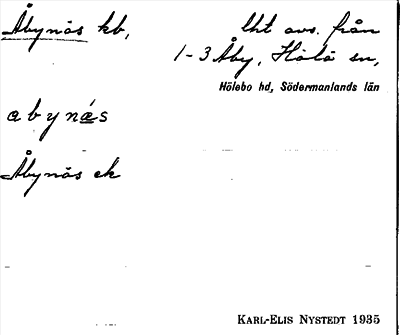 Åbynäs kb,
lht avs. från
1-3 Åby, Hölö sn,
Hölebo hd, Södermanlands län
abynäs
Åbynäs ek
KARL-ELIS NYSTEDT 1935